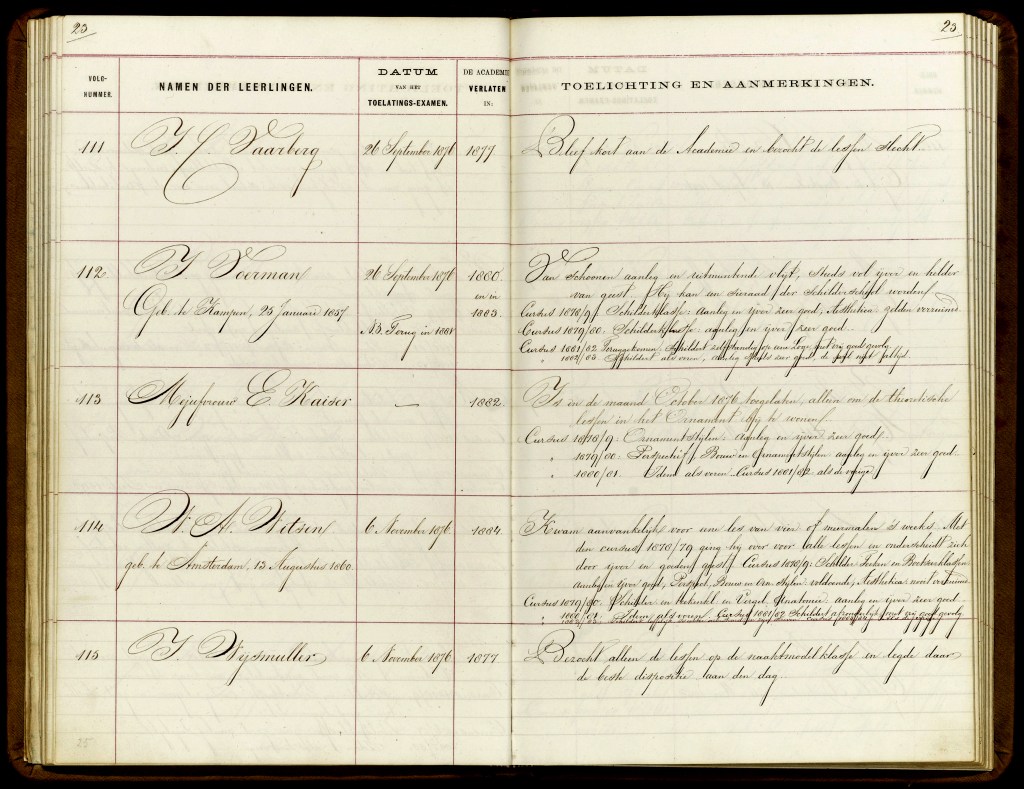 23
23
VOLG-
NUMMER.
NAMEN DER LEERLINGEN.
DATUM
VAN HET
TOELATINGS-EXAMEN.
DE ACADEMIE
VERLATEN
IN:
TOELICHTING EN AANMERKINGEN.
111
Vaarberg
26 September 1876
1877.
Bleef kort aan de Academie en bezocht de lessen slecht.
112
Voerman
Geb. te Kampen, 25 Januarie 1857
26 September 1876
NB. Terug in 1881
1880.
en in
1883.
Van schoonen aanleg en uitmuntende vlijt; steeds vol ijver en helder
van geest. Hij kan een sieraad der Schilderschool worden.
Cursus 1878/9. Schilderklasse: aanleg en ijver zeer goed; Aesthetica zelden verzuimd.
Cursus 1879/80. Schilderklasse aanleg en ijver zeer goed.
Cursus 1881/82 Teruggekomen. Schildert zelfstandig op een Loge met vrij goed gevolg.
1882/83. Schildert als voren, aanleg
113
Mejufvrouw E. Kaiser
—
1882.
Is in de maand October 1876 toegelaten, alleen om de theoretische
lessen in het Ornament bij te wonen.
Cursus 1878/9. Ornamentstylen: aanleg en ijver zeer goed.
" 1879/80. Perspectief, Bouw en Ornamentstylen aanleg en ijver zeer goed.
" 1880/81. Idem als voren. Cursus 1881/82 als de vorige.
114
W. A.
geb. te Amsterdam, 13 Augustus 1860.
6 November 1876.
1884.
Kwam aanvankelijk voor eene les van vier of meermalen 's weeks. Met
den cursus 1878/79 ging hij over voor alle lessen en onderscheidt zich
door ijver en goeden geest. Cursus 1878/9: Schilder Teeken en Boetseerklassen
aanleg en ijver goed, Perspect., Bouw en Orn. stylen: voldoende, Aesthetica nooit verzuimd.
Cursus 1879/80. Schilder en en Vergel. Anatomie aanleg en ijver zeer goed.
" 1880/81. Idem, als voren. Cursus 1881/82 Schildert afzonderlijk met vrij goed gevolg.
115
Wijsmuller
6 November 1876.
1877.
Bezocht alleen de lessen op de naaktmodelklasse en legde daar
de beste dispositie aan den dag.
25